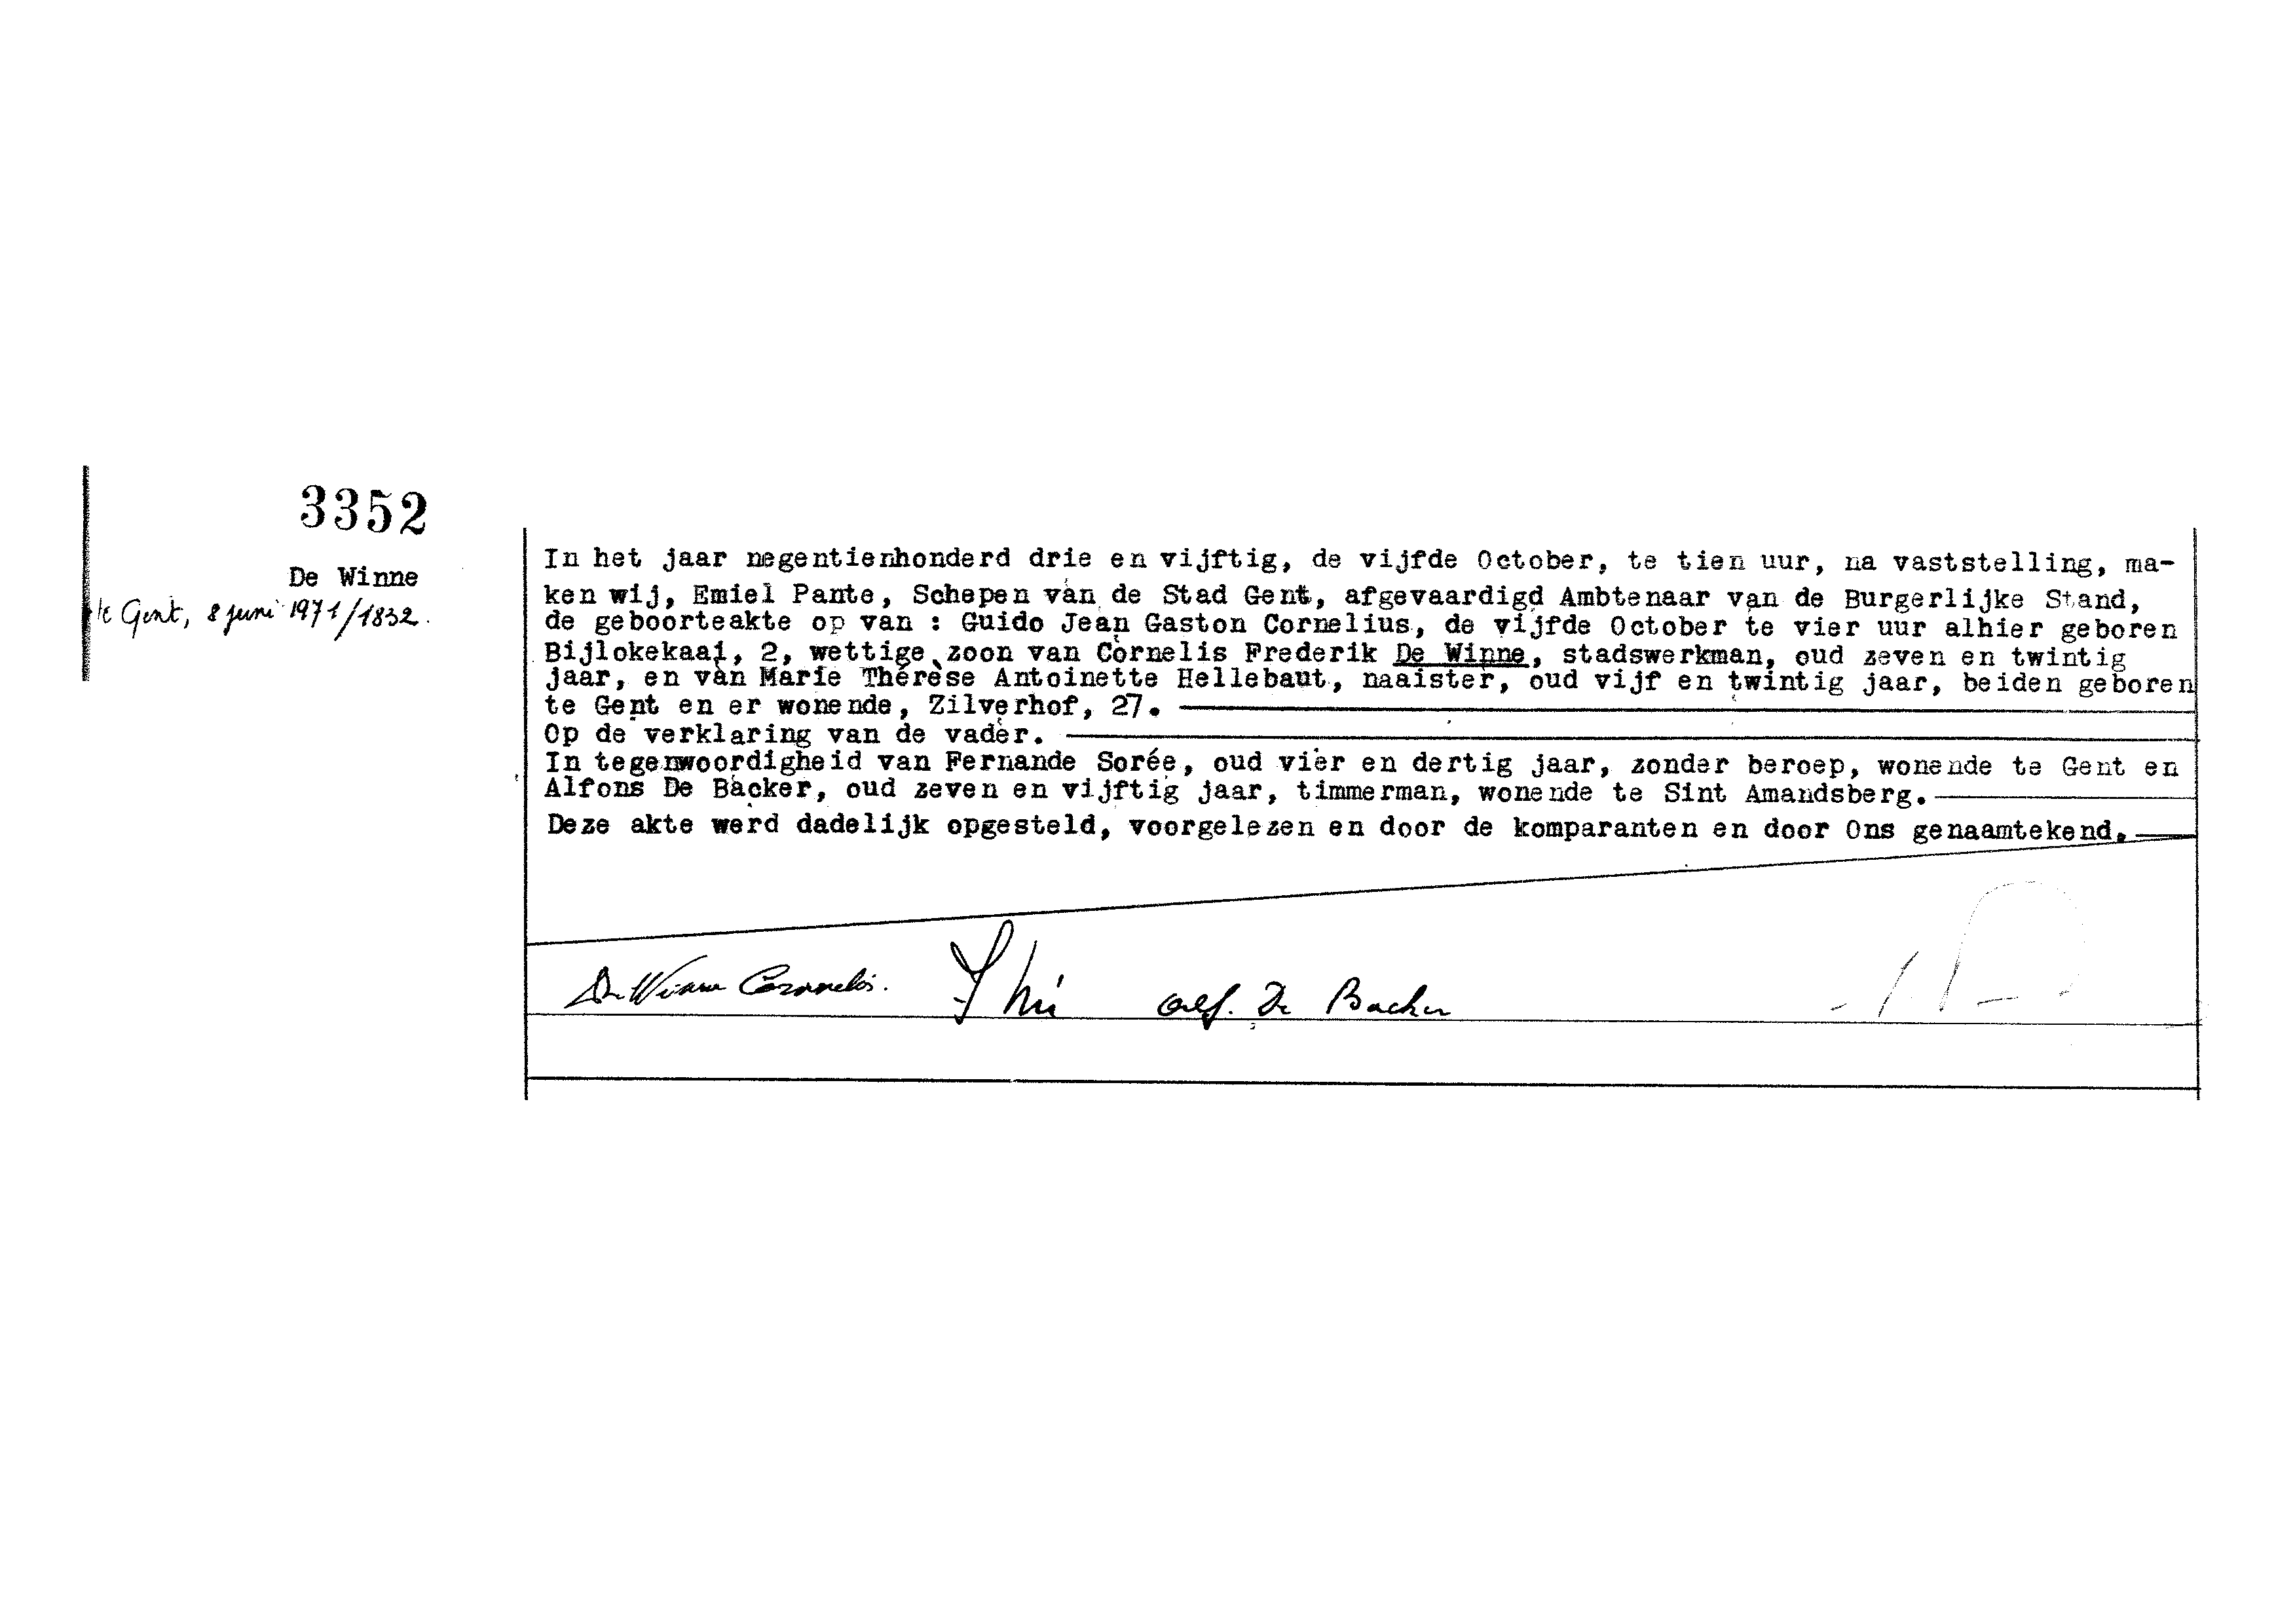 3352
De Winne
te Gent, 8 juni 1971/1832.
In het jaar negentienhonderd drie en vijftig, de vijfde October, te tien uur, na vaststelling, ma-
ken wij, Emiel Pante, Schepen van de Stad Gent, afgevaardigd Ambtenaar van de Burgerlijke Stand,
de geboorteakte op van : Guido Jean Gaston Cornelius, de vijfde October te vier uur alhier geboren
Bijlokekaai, 2, wettige zoon van Cornelis Frederik De Winne, stadswerkman, oud zeven en twintig
jaar, en van Marie Thérèse Antoinette Hellebaut, naaister, oud vijf en twintig jaar, beiden geboren
te Gent en er wonende, Zilverhof, 27.
Op de verklaring van de vader.
In tegenwoordigheid van Fernande Sorée, oud vier en dertig jaar, zonder beroep, wonende te Gent en
Alfons De Backer, oud zeven en vijftig jaar, timmerman, wonende te Sint Amandsberg.
Deze akte werd dadelijk opgesteld, voorgelezen en door de komparanten en door Ons genaamtekend.
De Winne Cornelis. Alf. De Backer